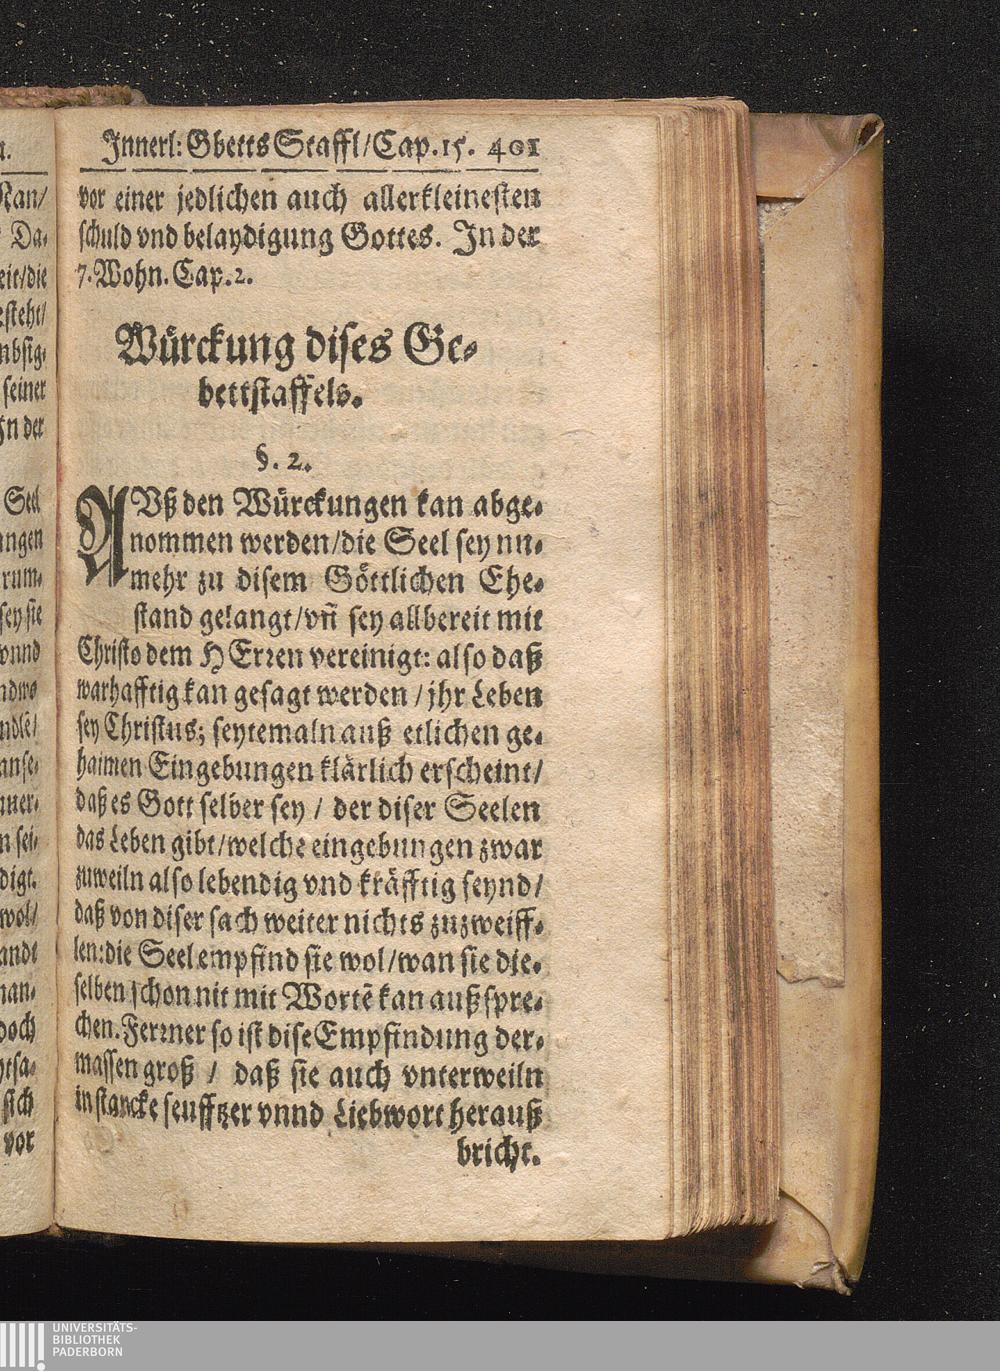 Innerl: Gbetts Staffl/Cap. 15. 401
vor einer jedlichen auch allerkleinesten
schuld vnd belaydigung Gottes. In der
7. Wohn. Cap. 2.
Würckung dises Ge-
bettstaffels.
§. 2.
AVß den Würckungen kan abge-
nommen werden/die Seel sey nu-
mehr zu disem Göttlichen Ehe-
stand gelangt/vñ sey allbereit mit
Christo dem HErren vereinigt: also daß
warhafftig kan gesagt werden / jhr Leben
sey Christus; seytemaln auß etlichen ge-
haimen Eingebungen klärlich erscheint/
daß es Gott selber sey / der diser Seelen
das Leben gibt/welche eingebungen zwar
zuweiln also lebendig vnd kräfftig seynd/
daß von diser sach weiter nichts zuzweiff-
len: die Seel empfind sie wol/wan sie die-
selben schon nit mit Wortẽ kan außspre-
chen. Ferrner so ist dise Empfindung der-
massen groß / daß sie auch vnterweiln
in starcke seufftzer vnnd Liebwort herauß
bricht.
Nan/
Da-
eit/die
steht/
seiner
In der
Seel
ungen
rum-
sey sie
vnnd
n sei-
digt.
wol/
doch
sich
vor
UNIVERSITÄTS-
BIBLIOTHEK
PADERBORN